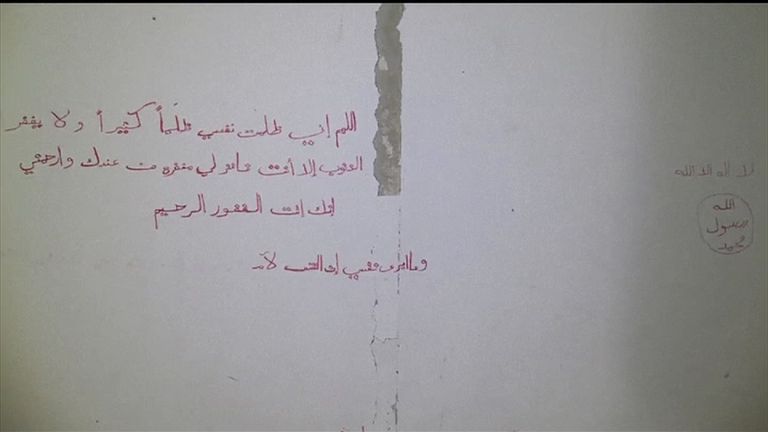 اللهم إني ظلمت نفسي ظلماً كثيراً ولا يغفر
الذنوب إلا أنت فاغفر لي مغفرة من عندك وارحمني
إنك انت الغفور الرحيم
لا اله الا الله
الله
رسول
محمد